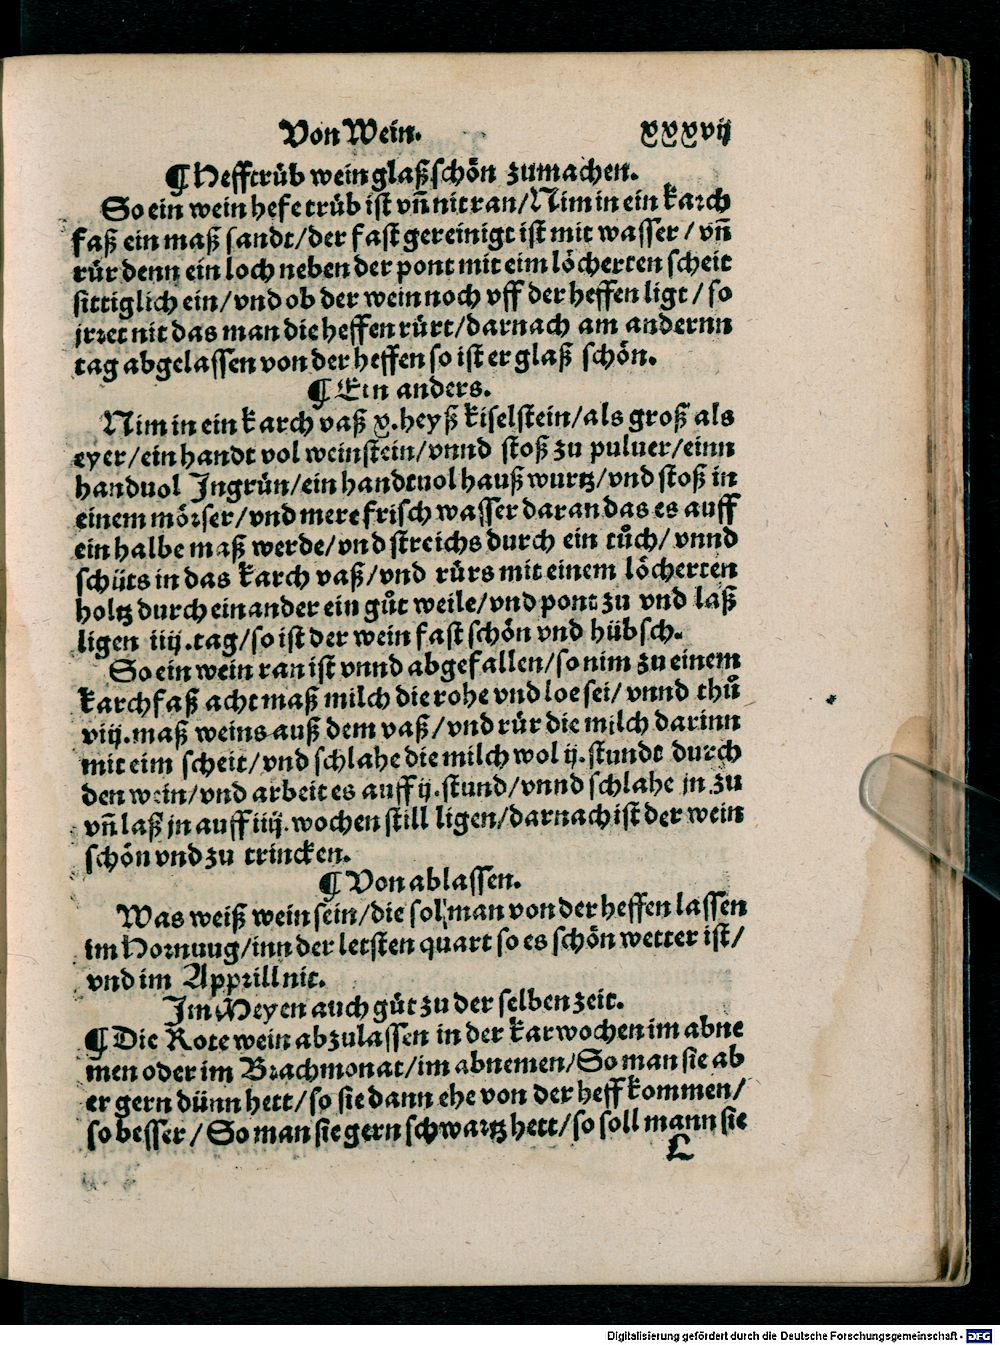 Von Wein. xxxvij
¶ Hefftrüb wein glaß schön zumachen.
So ein wein hefe trüb ist vñ nit ran/Nim in ein karch
faß ein maß sandt/der fast gereinigt ist mit wasser/vñ
rür denn ein loch neben der pont mit eim löcherten scheit
sittiglich ein/vnd ob der wein noch vff der heffen ligt/so
jrret nit das man die heffen rürt/darnach am andernn
tag abgelassen von der heffen so ist er glaß schön.
¶ Ein anders.
Nim in ein karch vaß x. heyß kiselstein/als groß als
eyer/ein handt vol weinstein/vnnd stoß zu puluer/einn
handuol Ingrün/ein handtuol hauß wurtz/vnd stoß in
einem mörser/vnd mere frisch wasser daran das es auff
ein halbe maß werde/vnd streichs durch ein tůch/vnnd
schüts in das karch vaß/vnd rürs mit einem löcherten
holtz durch einander ein gůt weile/vnd pont zů vnd laß
ligen iiij.tag/so ist der wein fast schön vnd hübsch.
So ein wein ran ist vnnd abgefallen/so nim zu einem
karchfaß acht maß milch die rohe vnd loe sei/vnnd thů
viij.maß weins auß dem vaß/vnd rür die milch darinn
mit eim scheit/vnd schlahe die milch wol ij.stundt durch
den wein/vnd arbeit es auff ij.stund/vnnd schlahe jn zu
vñ laß jn auff iiij.wochen still ligen/darnach ist der wein
schön vnd zu trincken.
¶ Von ablassen.
Was weiß wein sein/die sol man von der heffen lassen
im Hornuug/inn der letsten quart so es schön wetter ist/
vnd im Apprill nit.
Im Meyen auch gůt zu der selben zeit.
¶ Die Rote wein abzulassen in der karwochen im abne
men oder im Brachmonat/im abnemen/So man sie ab
er gern dünn hett/so sie dann ehe von der heff kommen/
so besser/So man sie gern schwartz hett/so soll mann sie
L
Digitalisierung gefördert durch die Deutsche Forschungsgemeinschaft - DFG